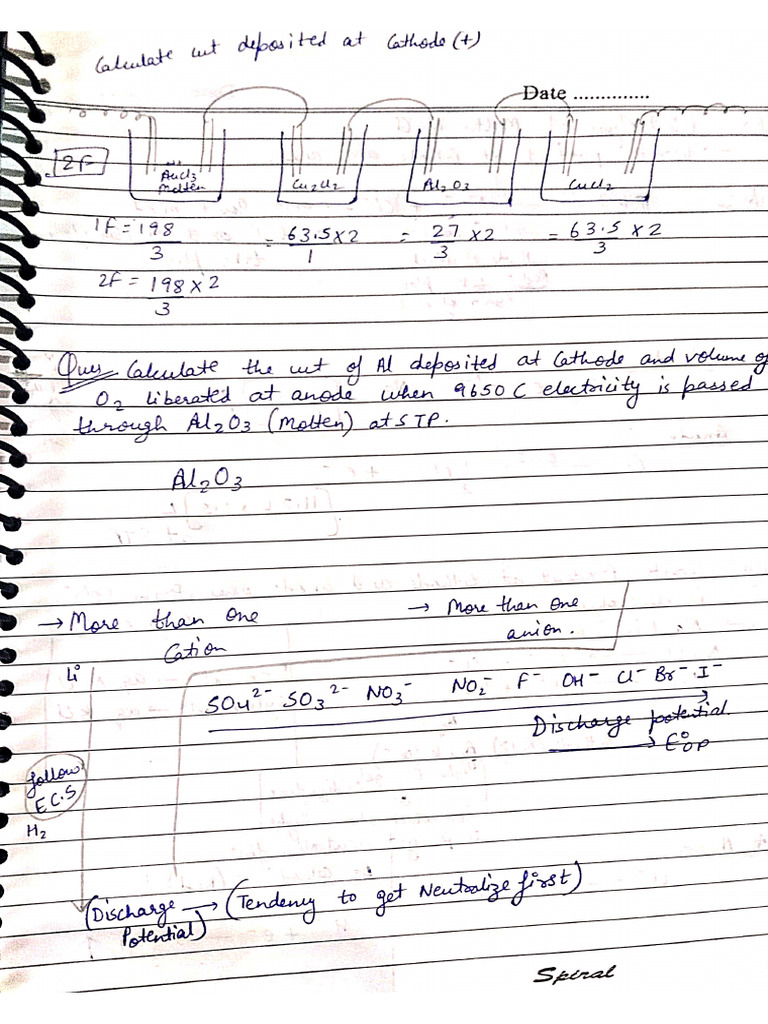 Calculate wt deposited at Cathode (+)
Date ..............
2F
AuCl3 Molten
Cu2Cl2
Al2O3
CuCl2
1F = 198/3 = 63.5×2/1 = 27/3 ×2 = 63.5/3 ×2
2F = 198×2/3
Ques Calculate the wt of Al deposited at Cathode and volume of
O2 liberated at anode when 9650 C electricity is passed
through Al2O3 (Molten) at STP.
Al2O3
→ More than one Cation
→ More than one anion.
Li
SO4²⁻ SO3²⁻ NO3⁻ NO2⁻ F⁻ OH⁻ Cl⁻ Br⁻ I⁻
Discharge potential
→ E°OP
follow E.C.S
H2
(Discharge Potential) → (Tendency to get Neutralize first)
Spiral